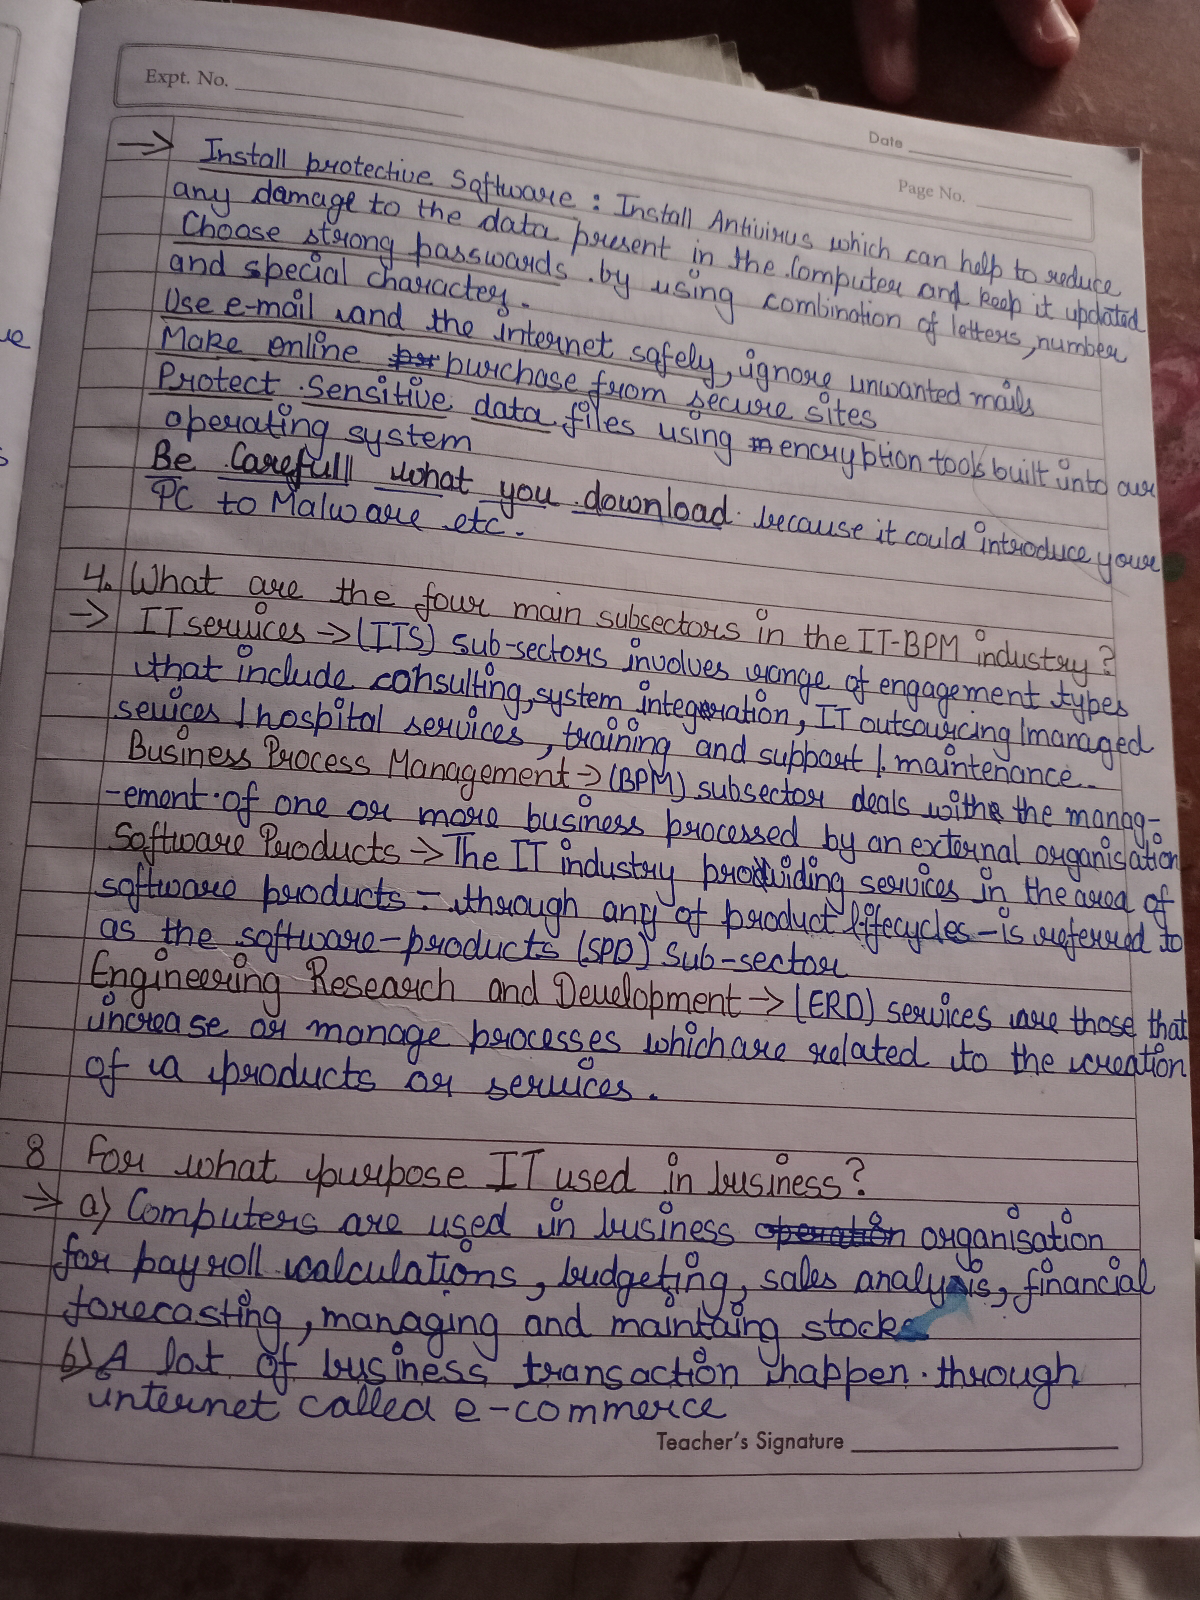 Expt. No.
Date
Page No.
→ Install protective Software : Install Antivirus which can help to reduce
any damage to the data present in the Computer and keep it updated
Choose strong passwards by using combination of letters, number
and special character.
Use e-mail and the internet safely, ignore unwanted mails
Make online purchase from secure sites
Protect Sensitive data files using encryption tools built into our
operating system
Be Carefull what you download because it could introduce your
PC to Malware etc.
4. What are the four main subsectors in the IT-BPM industry?
→ IT services → (ITS) sub-sectors involves range of engagement types
that include consulting, system integration, IT outsourcing / managed
sevices / hospital services, training and support / maintenance.
Business Process Management → (BPM) subsector deals with the manag-
-ement of one or more business processed by an external organisation
Software Products → The IT industry providing services in the area of
software products - through any of product lifecycles - is referred to
as the software-products (SPD) Sub-sector
Engineering Research and Development → (ERD) services are those that
increase or manage processes which are related to the creation
of a products or services.
8 For what purpose IT used in business?
→ a) Computers are used in business operation organisation
for payroll calculations, budgeting, sales analysis, financial
forecasting, managing and maintaing stocks
b) A lot of business transaction happen through
internet called e-commerce
Teacher's Signature